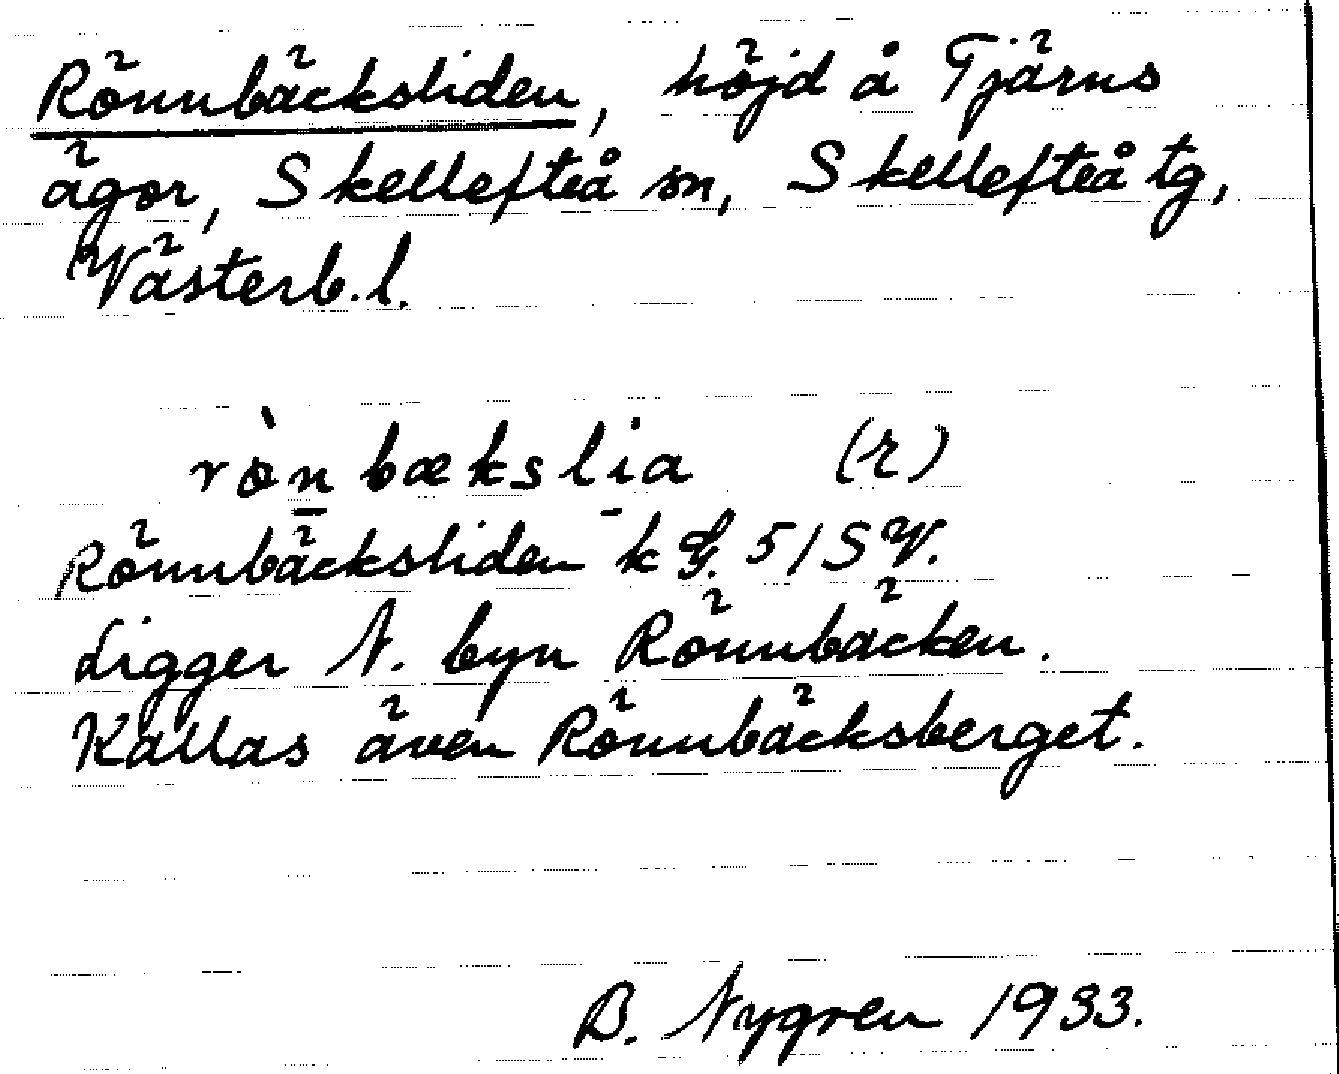 Rönnbäcksliden, höjd å Tjärns
ägor, Skellefteå sn, Skellefteå tg,
Västerb. l.
rò̀n bækslia (r)
Rönnbäcksliden k G. 51 SV.
Ligger N. byn Rönnbäcken.
Kallas även Rönnbäcksberget.
B. Nygren 1933.